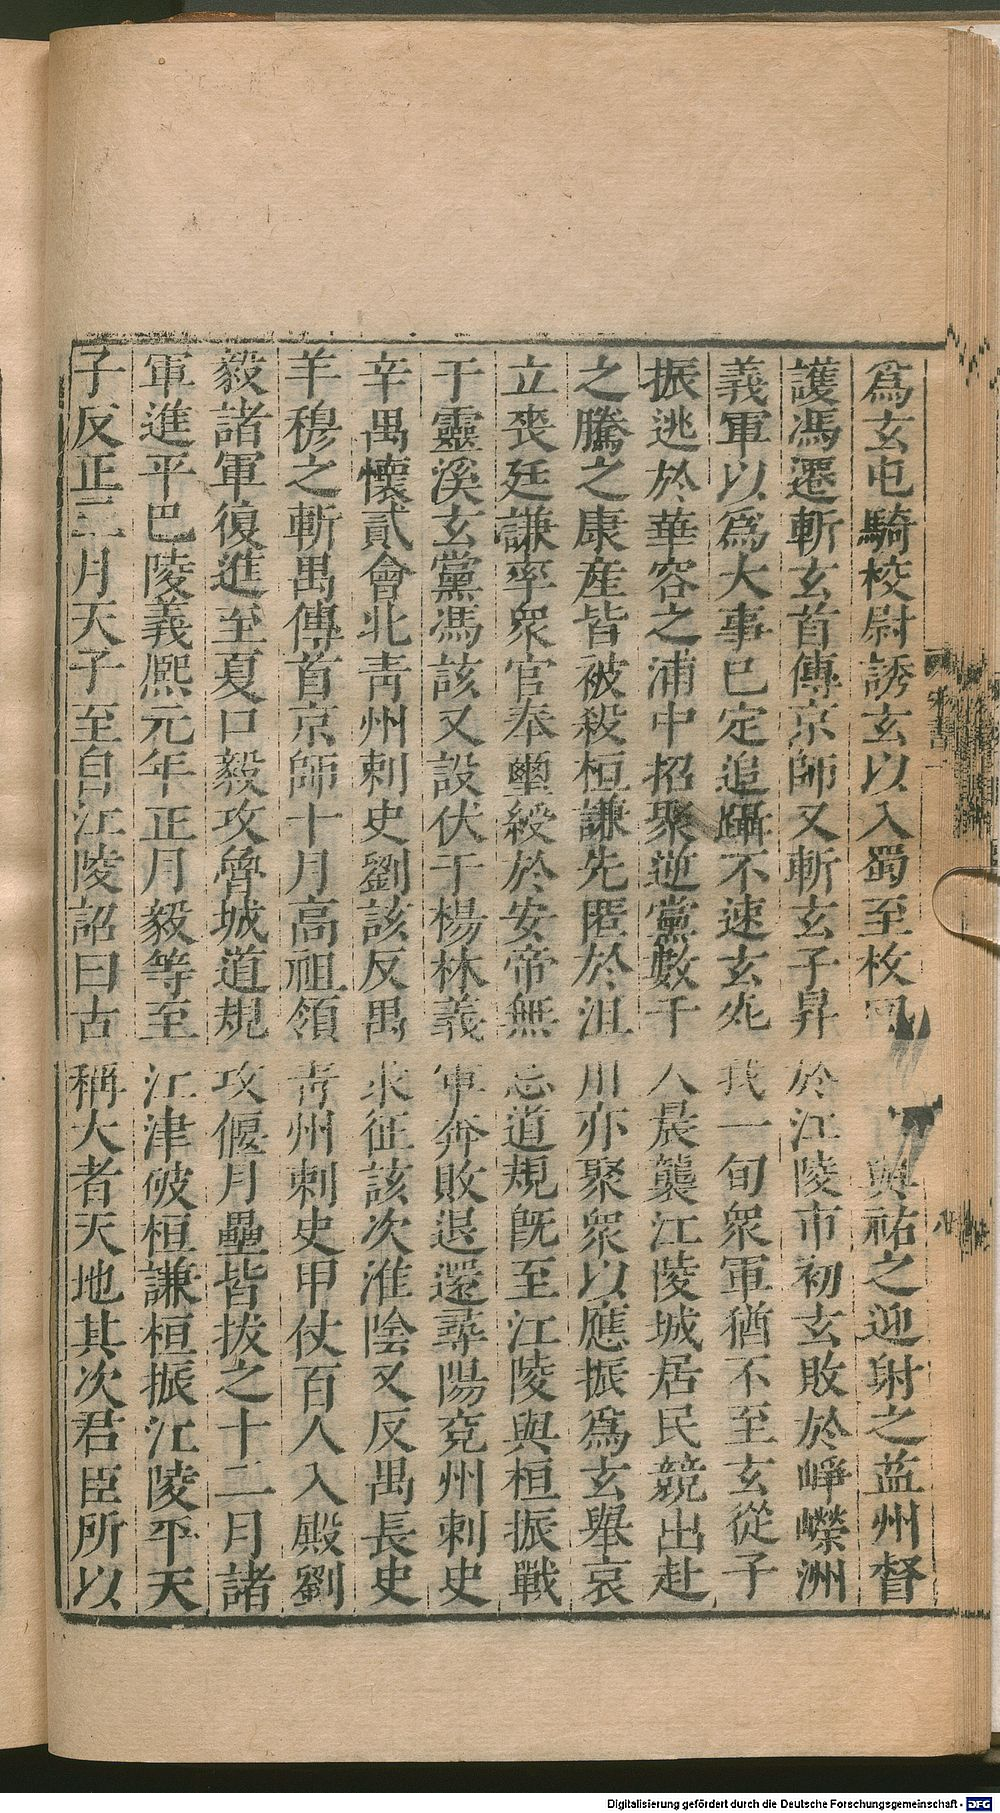 爲玄屯騎校尉誘玄以入蜀至枚回 與祐之迎射之益州督
護馮遷斬玄首傳京師又斬玄子昇於江陵市初玄敗於崢嶸洲
義軍以爲大事已定追躡不速玄死我一旬衆軍猶不至玄從子
振逃於華容之浦中招聚逆黨數千人晨襲江陵城居民競出赴
之騰之康産皆被殺桓謙先匿於沮川亦聚衆以應振爲玄舉哀
立喪廷謙率衆官奉璽綬於安帝無忌道規既至江陵與桓振戰
于靈溪玄黨馮該又設伏于楊林義軍奔敗退還尋陽兗州刺史
辛禺懷貳會北青州刺史劉該反禺求征該次淮陰又反禺長史
羊穆之斬禺傳首京師十月高祖領青州刺史甲仗百人入殿劉
毅諸軍復進至夏口毅攻魯城道規攻偃月壘皆拔之十二月諸
軍進平巴陵義熙元年正月毅等至江津破桓謙桓振江陵平天
子反正三月天子至自江陵詔曰古稱大者天地其次君臣所以
宋書一
八
Digitalisierung gefördert durch die Deutsche Forschungsgemeinschaft - DFG